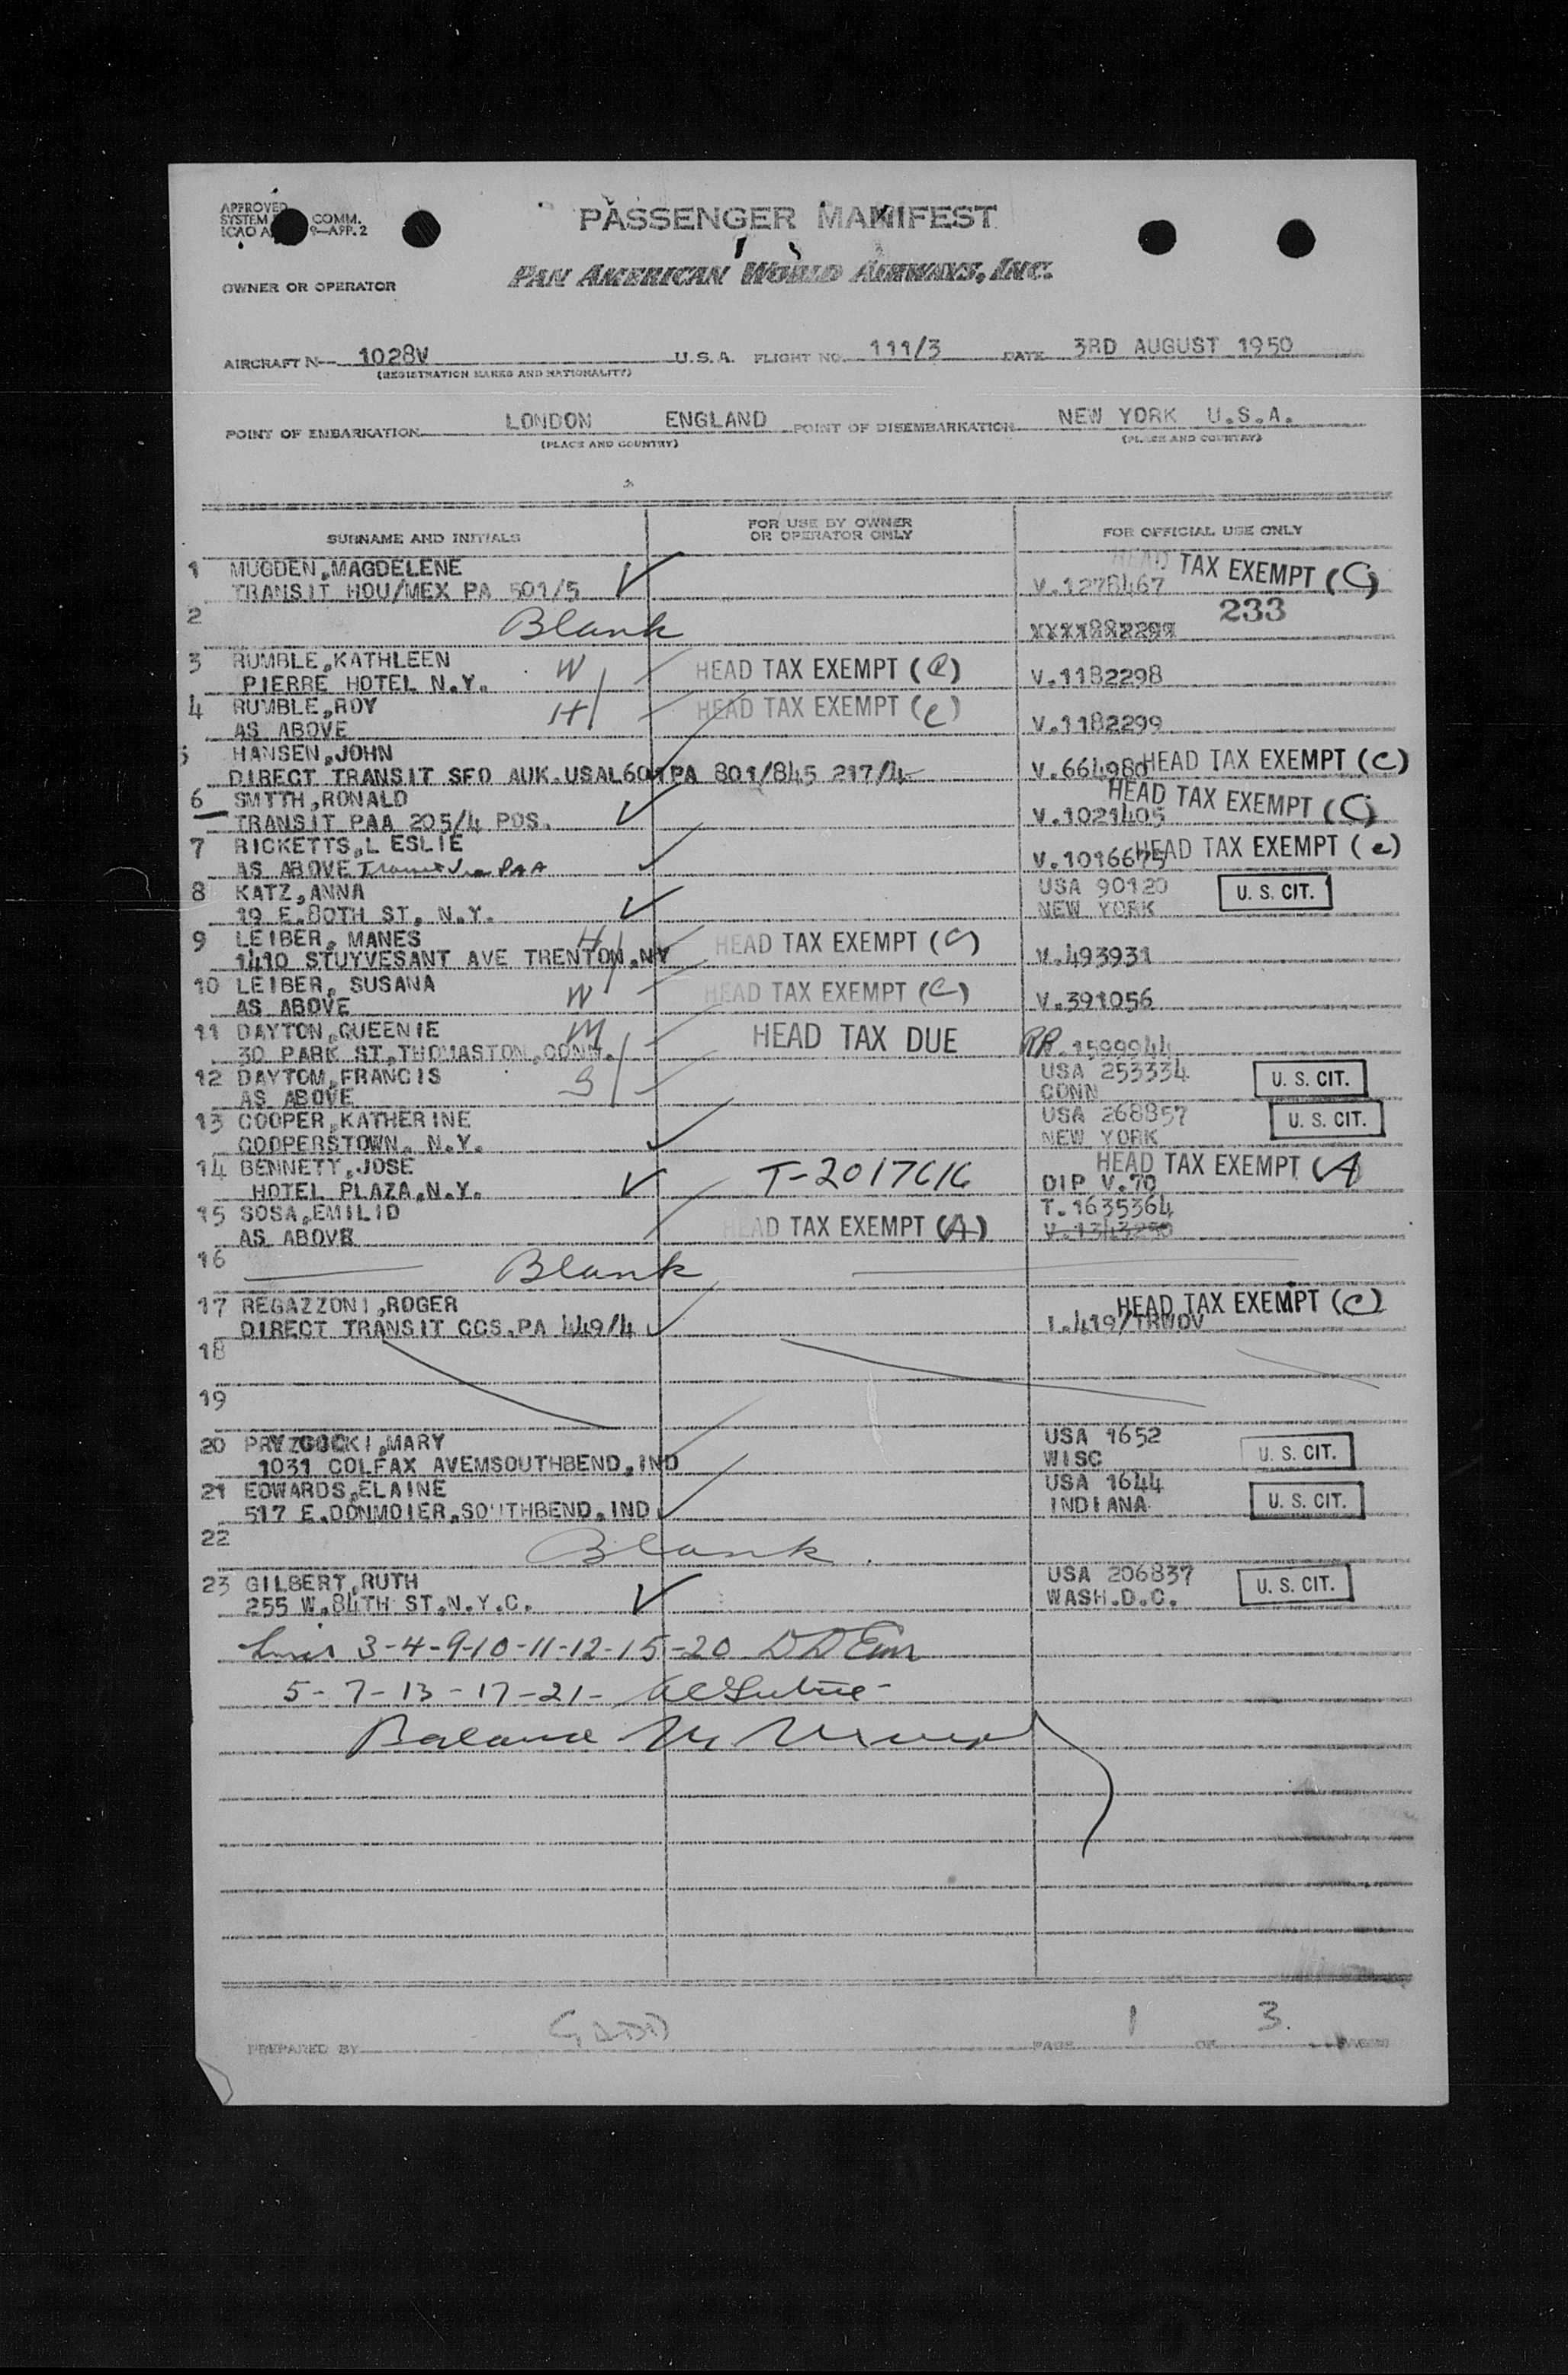 APPROVED
SYSTEM COMM.
ICAO A 9—APP. 2
PASSENGER MANIFEST
PAN AMERICAN WORLD AIRWAYS, INC.
OWNER OR OPERATOR
AIRCRAFT N— 1028V U.S.A. FLIGHT NO. 111/3 DATE 3RD AUGUST 1950
(REGISTRATION MARKS AND NATIONALITY)
POINT OF EMBARKATION LONDON ENGLAND POINT OF DISEMBARKATION NEW YORK U.S.A.
(PLACE AND COUNTRY) (PLACE AND COUNTRY)
SURNAME AND INITIALS FOR USE BY OWNER OR OPERATOR ONLY FOR OFFICIAL USE ONLY
1 MUGDEN,MAGDELENE HEAD TAX EXEMPT (C)
TRANSIT HOU/MEX PA 501/5 V.1278467
233
2 Blank XXXX882299
3 RUMBLE,KATHLEEN W HEAD TAX EXEMPT (C)
PIERRE HOTEL N.Y. V.1182298
4 RUMBLE,ROY H HEAD TAX EXEMPT (C)
AS ABOVE V.1182299
5 HANSEN,JOHN HEAD TAX EXEMPT (C)
DIRECT TRANSIT SFO AUK.USAL601PA 801/845 217/4 V.664980
6 SMTTH,RONALD HEAD TAX EXEMPT (C)
TRANSIT PAA 205/4 POS. V.1021405
7 RICKETTS,L ESLIE HEAD TAX EXEMPT (c)
AS ABOVE Transit Via PAA V.1016675
8 KATZ,ANNA USA 90120 U. S. CIT.
19 E.80TH ST, N.Y. NEW YORK
9 LEIBER, MANES H HEAD TAX EXEMPT (C)
1410 STUYVESANT AVE TRENTON,NY V.493931
10 LEIBER, SUSANA W HEAD TAX EXEMPT (C)
AS ABOVE V.391056
11 DAYTON,QUEENIE M HEAD TAX DUE
30 PARK ST,THOMASTON,CONN. RP.1599944
12 DAYTOM,FRANCIS S USA 253334 U. S. CIT.
AS ABOVE CONN
13 COOPER,KATHERINE USA 268857 U. S. CIT.
COOPERSTOWN, N.Y. NEW YORK
14 BENNETY,JOSE T-2017616 HEAD TAX EXEMPT (A)
HOTEL PLAZA,N.Y. DIP V.70
15 SOSA,EMILIO HEAD TAX EXEMPT (A) T.1635364
AS ABOVE V.1343290
16 Blank
17 REGAZZONI,ROGER HEAD TAX EXEMPT (C)
DIRECT TRANSIT CCS.PA 449/4 I.419/TRWOV
18
19
20 PRYZGOCKI,MARY USA 1652 U. S. CIT.
1031 COLFAX AVEMSOUTHBEND,IND WISC
21 EDWARDS,ELAINE USA 1644 U. S. CIT.
517 E.DONMOIER,SOUTHBEND,IND INDIANA
22 Blank.
23 GILBERT,RUTH USA 206837 U. S. CIT.
255 W.84TH ST,N.Y.C. WASH.D.C.
3-4-9-10-11-12-15-20
5-7-13-17-21-
Balance
PREPARED BY GADD PAGE 1 OF 3 PAGES